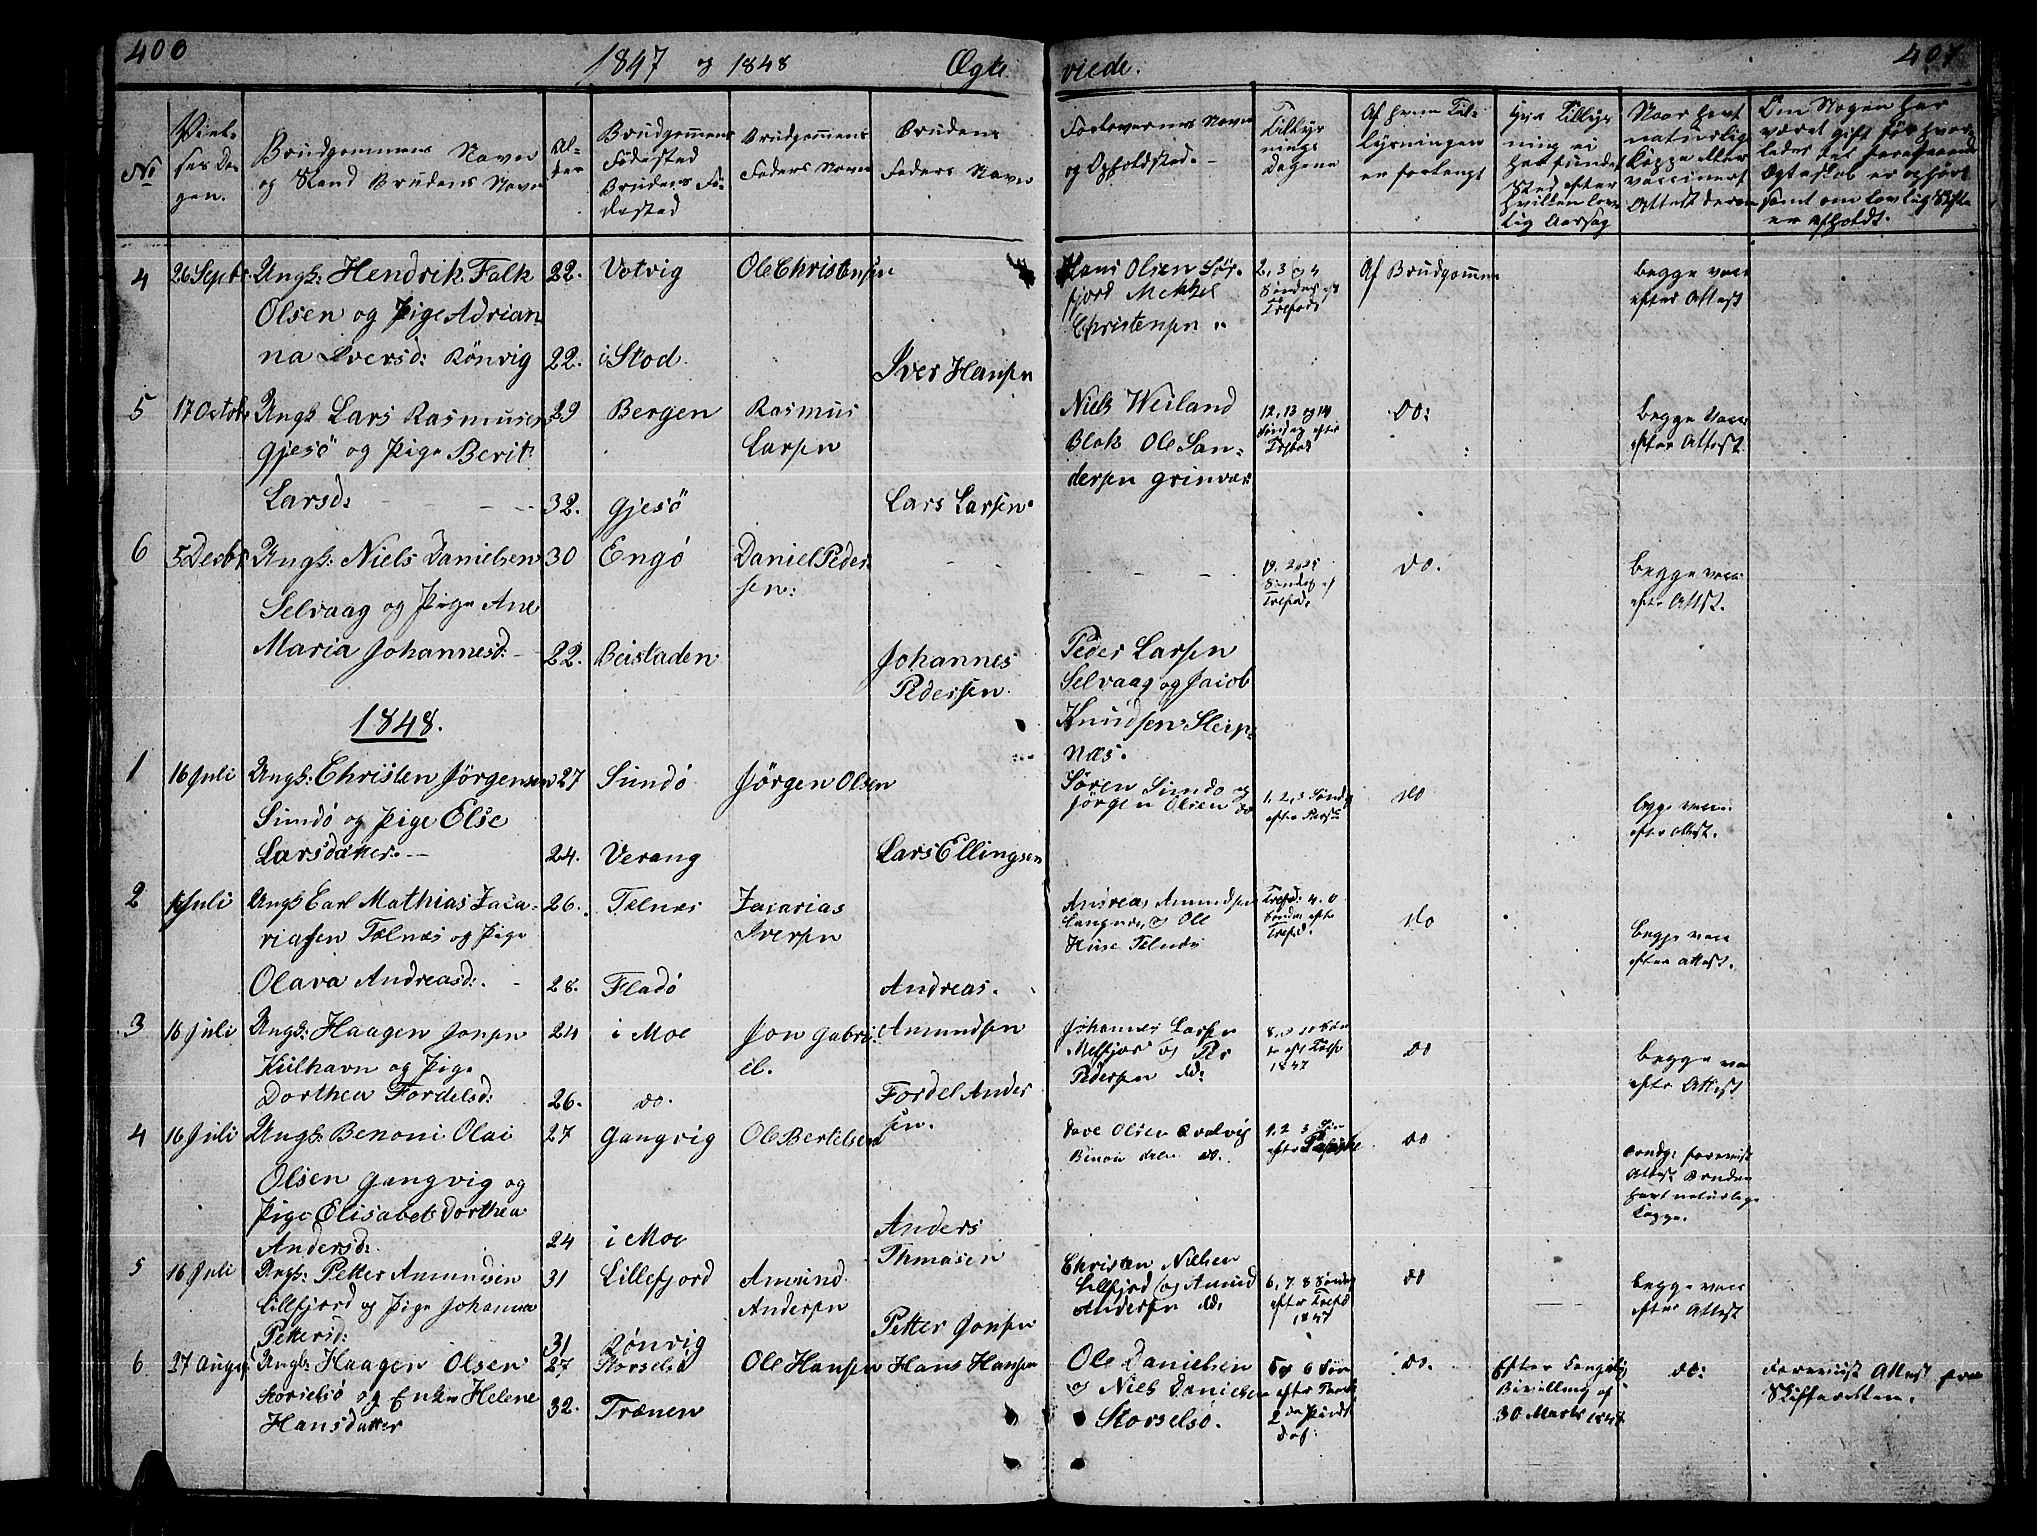 400
1847 og 1848
Ægte
viede.
407
No
Viel-
ses Da-
gen.
Brudgommens Navn
og Stand Brudens Navn
Al-
der
Brudgommens
Fødested
Brudens Fø-
dested
Brudgommens
Faders Navn
Brudens
Faders Navn
Forlovernes Navne
og Opholdsted.
Tillys-
nings
Dagene
Af hvem Til-
lysningen
er forlangt
Hvis Tillys-
ning ei
har fundet
Sted efter
hvilken lov-
lig Aarsag
Naar havt
naturlig
Kopper eller
vaccineret
Attest derom
Om Nogen har
været gift før hvor-
ledes det foregaaende
Ægteskab er ophørt
samt om lovlig Skifte
er afholdt.
4
26 Septbr
Ungk: Hendrik Falk
Olsen og Pige Adrian-
na Iversd: Rönvig
22.
22.
Votvig
i Stod
Ole Christensen
Iver Hansen
Hans Olsen Sör-
fjord Mekkel
Christensen
2, 3 og 4
Søndag ef
Trefold
Af Brudgommen
begge vacc
efter Attest
5
17 Octobr
Ungk Lars Rasmusen
Gjesö og Pige Berit
Larsd:
29
32.
Bergen
Gjesö
Rasmus
Larsen
Lars Larsen
Niels Weiland
Blok Ole San-
dersen Grinvær
12, 13 og 14
Søndag efter
Trefold
do:
begge vacc
efter Attest
6
5 Decbr
Ungk: Niels Danielsen
Selvaag og Pige Ane
Maria Johannesd:
30
22.
Engö
Beistaden
Daniel Peder-
sen:
Johannes
Pedersen
Peder Larsen
Selvaag og Jacob
Knudsen Sleip-
næs.
Søndag ef
Trefold.
do.
begge vacc
efter Attest.
1848.
1
16 Juli
Ungk: Christen Jørgensen
Sundö og Pige Else
Larsdatter.
27
24.
Sundö
Verang
Jørgen Olsen
Lars Ellingsen
Søren Sundö og
Jørgen Olsen do
1, 2, 3 Søndag
efter
do
begge vacc
efter Attest.
2
Juli
Ungk Carl Mathias Zaca-
riasen Tælnæs og Pige
Olava Andreasd:
26.
28.
Tælnæs
Fladö
Zacarias
Iversen
Andreas
Amundsen
Andreas Amundsen
Langnæs, og Ole
Huse Telnæs
Søndag efter
Trefd.
do
begge vacc
efter Attest.
3
16 Juli
Ungk: Haagen Jonsen
Kilhavn og Pige
Dorthea Fordelsd:
24
26.
i Moe
do.
Jon Gabri-
el.
Fordel Ander
sen.
Johannes Larsen
Melfjord og Per
Pedersen do:
1847
do
begge va
efter Attest
4
16 Juli
Ungk: Benoni Olai
Olsen Gangvig og
Pige Elisabet Dorthea
Andersd:
27
24
Gangvig
i Moe
Ole Bertelsen
Anders
Thmasen
Dave Olsen Qvalvig
do.
1, 2 3
efter Paaske
do
Brudg: foreviist
Attest Bruden
havt naturlige
Kopper.
5
16 Juli
Ungk: Petter Amundsen
Lillfjord og Pige Johanna
Pettersd:
31
31
Lillefjord
Rönvig
Amund
Andersen
Petter Jonsen
Christen Nielsen
Lillfjord og Amund
Andersen do:
6, 7 8 Søndag
efter Trefd
1847
do
begge vacc
efter Attest
6
27 August
Ungk: Haagen Olsen
Storselsö og Enke Helene
Hansdatter
27
32.
Storselsö
Trænen
Ole Hansen
Hans Hansen
Ole Danielsen
og Niels Danielsen
Storselsö.
5 og 6 Søn
efter Paaske
2 da Pinds
dag:
do.
Efter Kongelig
Bevilling af
30 Marts 1848
do:
Foreviist Attest fra
Skifteretten.